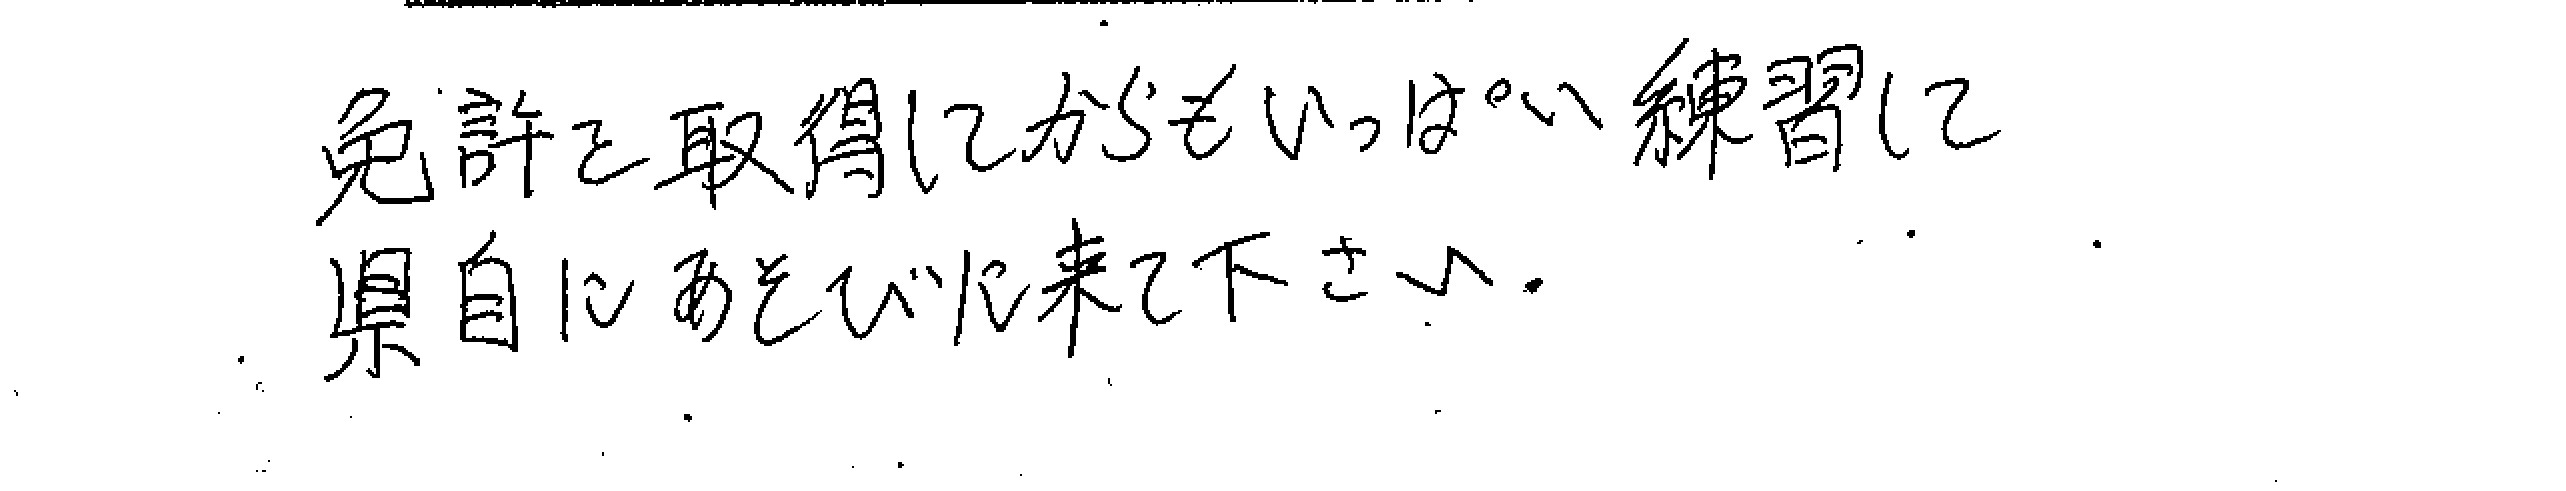 免許を取得してからもいっぱい練習して
県自にあそびに来て下さい.